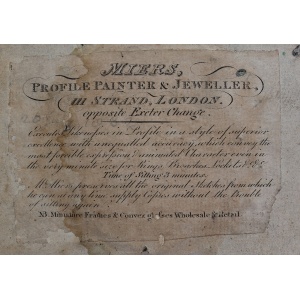 MIERS,
PROFILE PAINTER & JEWELLER,
111 STRAND, LONDON,
opposite Exeter Change.
Executes Likenesses in Profile in a style of superior
excellence with unequalled accuracy, which convey the
most forcible expression & animated Character even in
the very minute size for Rings, Brooches, Lockets &c. &c.
Time of Sitting 3 minutes.
Mr. Miers preserves all the original Sketches from which
he can at any time supply Copies without the trouble
of sitting again.
NB. Miniature Frames & Convex glasses Wholesale & Retail